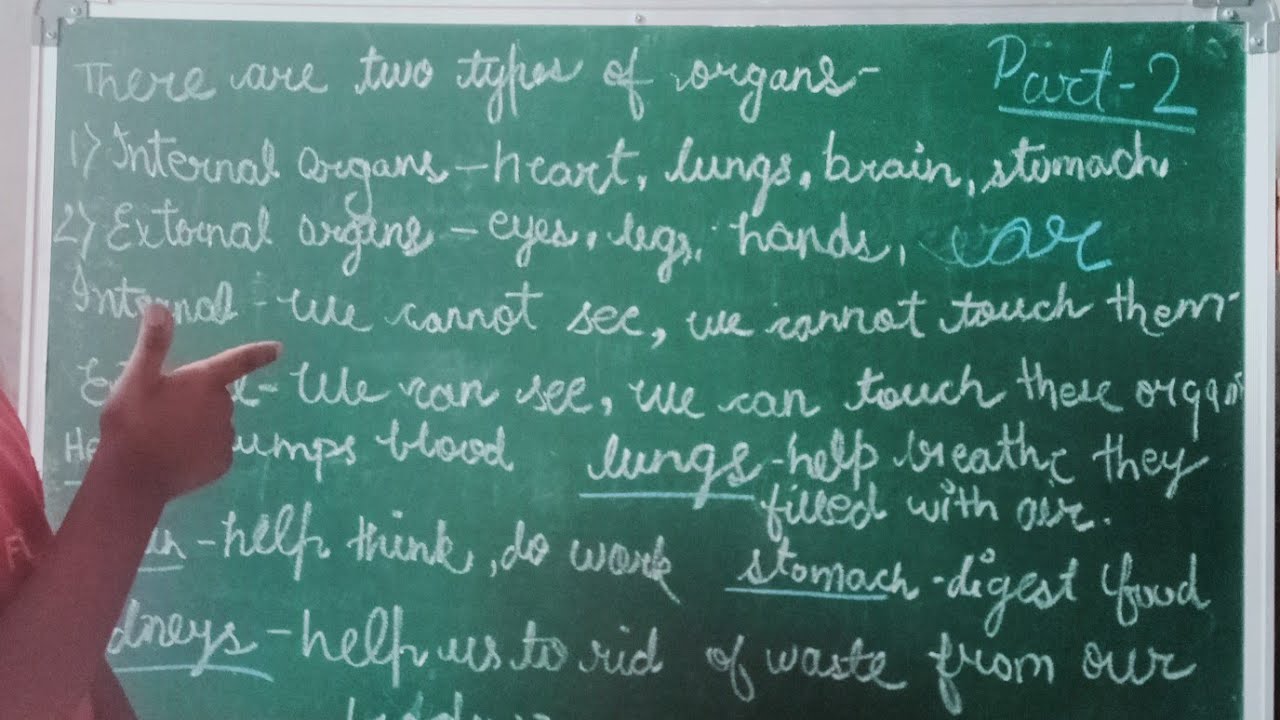 There are two types of organs- Part-2
1) Internal organs - heart, lungs, brain, stomach
2) External organs - eyes, legs, hands, ear
Internal - We cannot see, we cannot touch them-
We can see, we can touch these organs
blood lungs - help breathe they
filled with air.
- help think, do work stomach - digest food
- help us to rid of waste from our